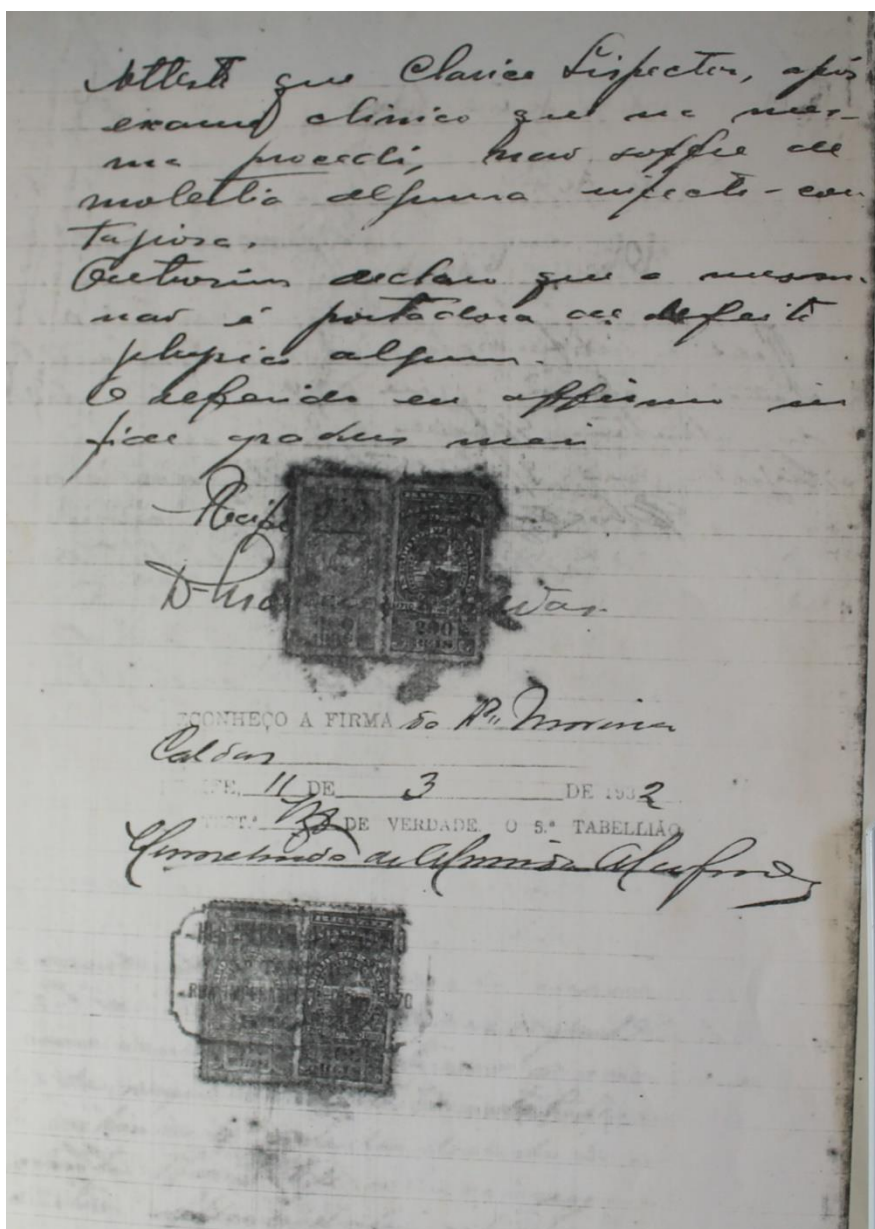 Attesto que Clarice Lispector, após
exame clinico que na mes-
ma procedi, não soffre de
molestia alguma infecto-con-
tagiosa.
Outrosim declaro que a mesma
não é portadora de defeito
physico algum.
O referido eu affirmo in
fide gradus mei
Recife
Dr.
200
RÉIS
ECONHEÇO A FIRMA do Dr. Moreira
Caldas
IFE, 11 DE 3 DE 1932
TEST.º DE VERDADE. O 5.º TABELLIÃO
de Almeida